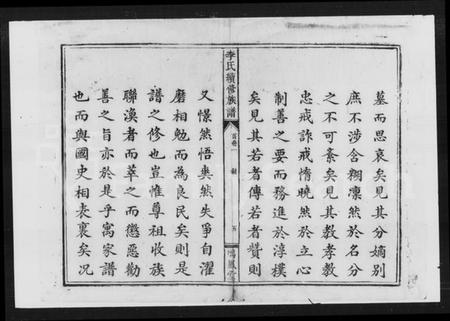 墓而思哀矣見其分嫡別
庶不涉含糊凜然於名分
之不可紊矣見其教孝教
忠戒詐戒惰曉然於立心
制善之要而務進於淳樸
矣見其若者傳若者贊則
李氏續修族譜
首卷一
五
鴻鳳堂
又憬然悟奭然失爭自濯
磨相勉而為良民矣則是
譜之修也豈惟尊祖收族
聯渙者而萃之而懲惡勸
善之旨亦於是乎寓家譜
也而與國史相表裏矣况